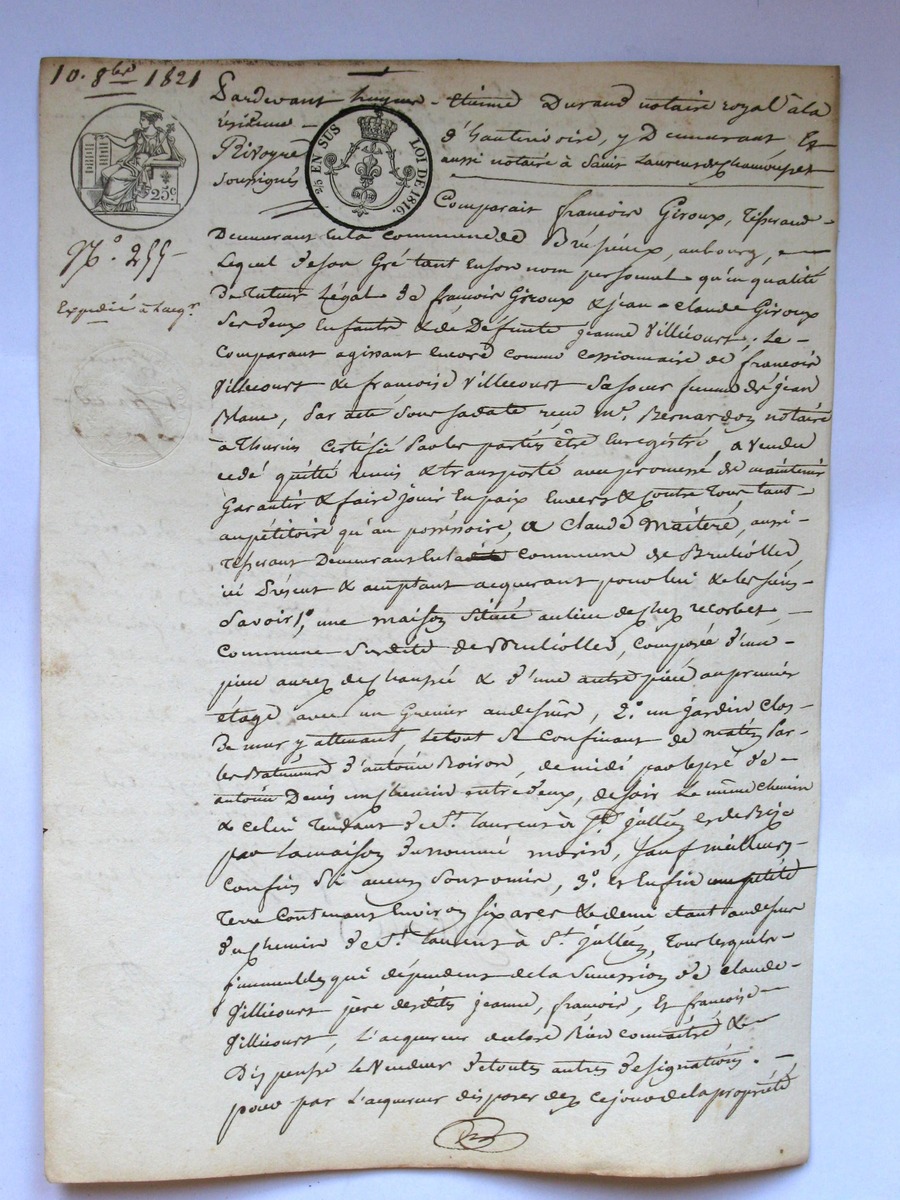 10. 8bre 1821
25c.
2/5 EN SUS LOI DE 1816.
N°. 255
Expedié à l'acqr.
Pardevant hugues - Etienne Durand notaire royal à la
résidence d'hauterivoire, y Demeurant, Et
Rivoyre aussi notaire à Saint Laurent de chamousset
soussignés
Comparait françois Giroux, tisserand
Demeurant en la commune de Brussieux, au bourg,
Lequel de son Gré tant en son nom personnel qu'en qualité
de tuteur Légal de françois Giroux & jean-claude Giroux
ses deux Enfants & de Deffunte jeanne Villecourt; Le
Comparant agissant encore comme cessionnaire de françois
Villecourt & françoise Villecourt sa soeur femme de jean
Blanc, par acte sous sa date reçu me. Bernardon notaire
à Thurins certifié par les parties être Enregistré, a vendu
cedé quitté remis & transporté avec promesse de maintenir
Garantir & faire jouir En paix Envers & contre tous tant
au pétitoire qu'au possessoire, a Claude maiteré, aussi
tisserant Demeurant en la commune de Brulliolles,
ici présent & acceptant acquerant pour lui & les siens
Savoir 1°. une maison située au lieu de chez recorbet,
Commune susdite de Brulliolles, composée d'une
piece au rez de chaussée & d'une autre piece au premier
étage avec un Grenier au dessus, 2°. un jardin clos
de mur y attenant, le tout se confinant de matin par
les batiments d'antoine Poiron, de midi par le pré de
antoine Denis un chemin entre deux, de soir le même chemin
& celui tendant de st. laurent à st. jullien et de Bize
par la maison du nommé morin, sauf meilleurs
Confins si aucuns sont omis, 3°. et Enfin une petite
terre contenant Environ six ares & demi étant au dessus
du chemin de st. laurent à st. jullien, tous lesquels
jmmeubles qui dépendent de la succession de claude
Villecourt père desdits jeanne, françois, Et françoise
Villecourt, L'acquereur declare bien connaitre &
Dispense le vendeur de toutes autres désignations.
pour par L'acquereur disposer dez ce jour de la propriété